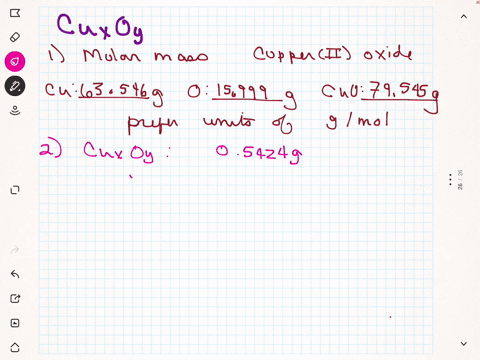 CuxOy
1) Molar mass Copper(II) oxide
Cu: 63.546g O: 15.999 g CuO: 79.545g
prefer units of g/mol
2) CuxOy: 0.5424g
26 / 26